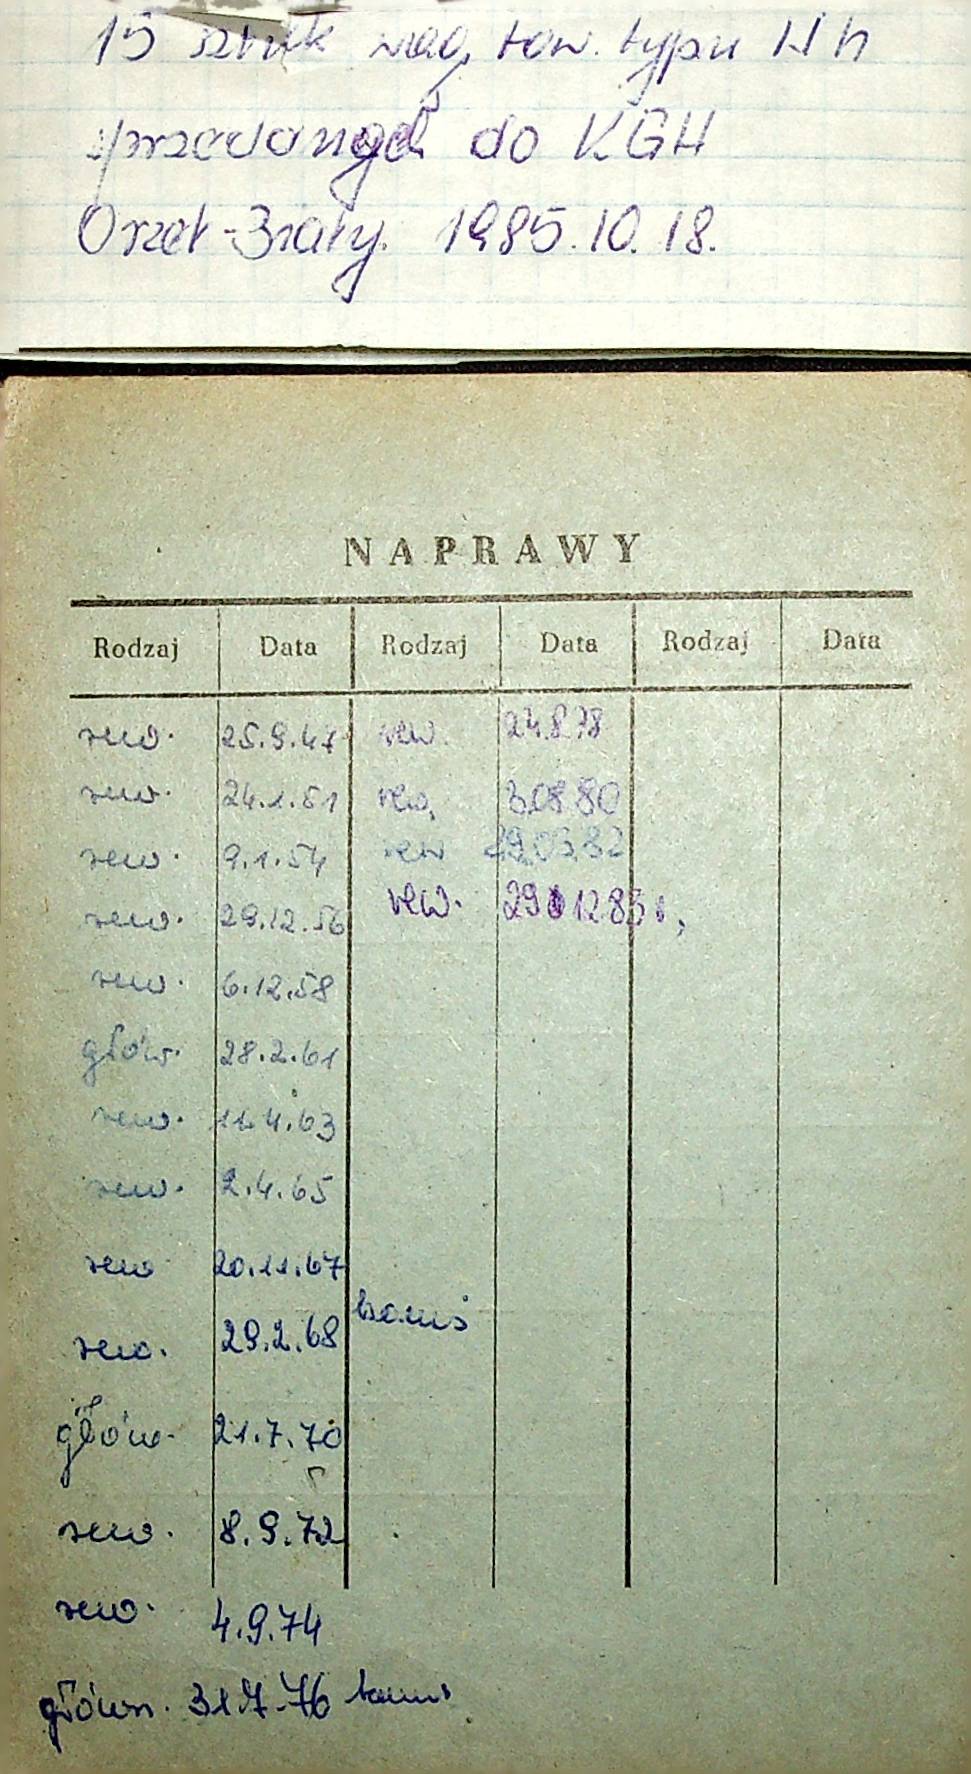 15 sztuk wag. tow. typu Wh
sprzedanych do KGH
Orzeł-Biały. 1985.10.18.
NAPRAWY
Rodzaj Data Rodzaj Data Rodzaj Data
rew. 25.9.47 rew. 24.8.78
rew. 24.1.51 rew. 3.08.80
rew. 9.1.54 rew 29.03.82
rew. 29.12.56 rew. 29 12 85
rew. 6.12.58
głów. 28.2.61
rew. 11.4.63
rew. 2.4.65
rew 20.11.67
rew. 29.2.68
głów. 21.7.70
rew. 8.9.72
rew. 4.9.74
główn. 31.7.76